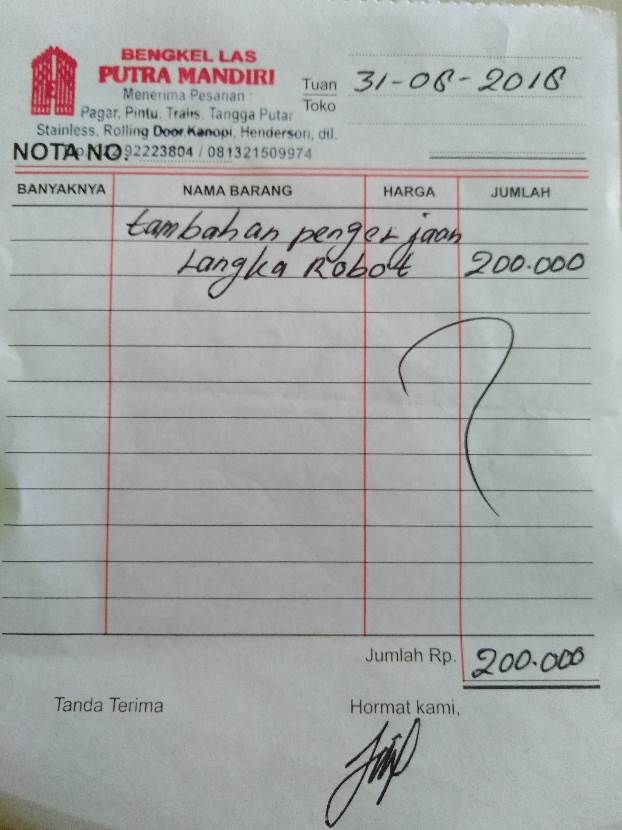 BENGKEL LAS
PUTRA MANDIRI
Menerima Pesanan :
Pagar, Pintu, Tralis, Tangga Putar
Stainless, Rolling Door Kanopi, Henderson, dll.
NOTA NO. 92223804 / 081321509974
31-08-2018
Tuan
Toko
BANYAKNYA NAMA BARANG HARGA JUMLAH
tambahan pengerjaan
Langka Robot 200.000
Jumlah Rp. 200.000
Tanda Terima Hormat kami,